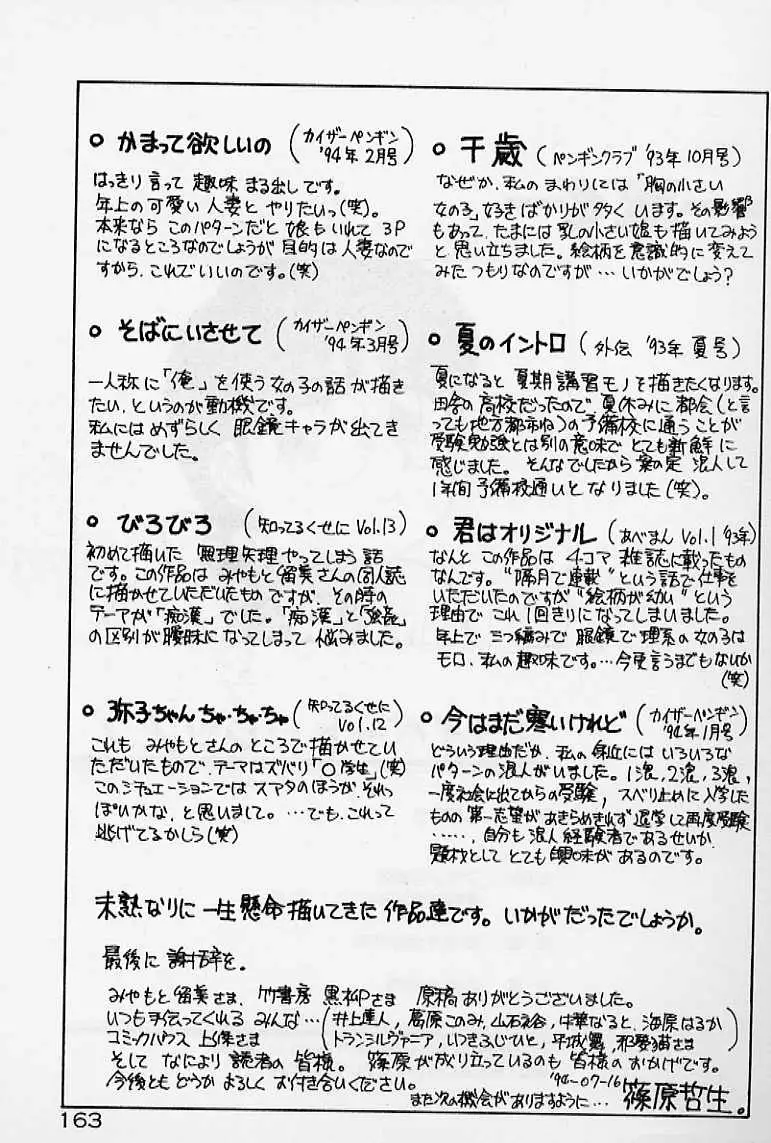 ○ かまって欲しいの (カイザーペンギン '94年2月号)
はっきり言って 趣味 まる出しです。
年上の可愛い人妻と やりたいっ(笑)。
本来なら このパターンだと 娘もいれて 3P
になるところなのでしょうが 目的は人妻なので
すから、これでいいのです。(笑)
○ そばにいさせて (カイザーペンギン '94年3月号)
一人称に「俺」を使う女の子の話が描き
たい、というのが動機です。
私にはめずらしく 眼鏡キャラが出てき
ませんでした。
○ びろびろ (知ってるくせに Vol.13)
初めて描いた 無理矢理やってしまう話
です。この作品は みやもと留美さんの同人誌
に描かせていただいたものですが、その時の
テーマが「痴漢」でした。「痴漢」と「強姦」
の区別が曖昧になってしまって 悩みました。
○ 弥子ちゃんちゃ・ちゃ・ちゃ (知ってるくせに Vol.12)
これも みやもとさんのところで描かせてい
ただいたもので、テーマはズバリ「○学生」(笑)
このシチュエーションでは スマタのほうが、それっ
ぽいかな、と思いまして。…でも、これって
逃げてるかしら(笑)
○ 千歳 (ペンギンクラブ '93年10月号)
なぜか、私のまわりには「胸の小さい
女の子」好きばかりが多くいます。その影響
もあって、たまには乳の小さい娘も描いてみよう
と思い立ちました。絵柄を意識的に変えて
みたつもりなのですが…いかがでしょう?
○ 夏のイントロ (外伝 '93年 夏号)
夏になると 夏期講習モノを描きたくなります。
田舎の高校だったので 夏休みに都会(と言
っても地方都市ね)の予備校に通うことが
受験勉強とは別の意味で とても新鮮に
感じました。そんなでしたから 案の定 浪人して
1年間予備校通いと なりました(笑)。
○ 君はオリジナル (あべまん Vol.1 93年)
なんと この作品は 4コマ 雑誌に載ったもの
なんです。"隔月で連載"という話で仕事を
いただいたのですが "絵柄が幼い"という
理由で これ1回きりになってしまいました。
年上で 三つ編みで 眼鏡で 理系の女の子は
モロ、私の趣味です。…今更言うまでもないか
(笑)
○ 今はまだ寒いけれど (カイザーペンギン '94年1月号)
どういう理由だか、私の身近には いろいろな
パターンの浪人がいました。1浪、2浪、3浪、
一度社会に出てからの受験、スベリ止めに入学した
ものの 第一志望があきらめきれず 退学して再度受験
……、自分も浪人経験者であるせいか、
題材として とても興味があるのです。
未熟なりに 一生懸命描いてきた 作品達です。いかがだったでしょうか。
最後に 謝辞を。
みやもと留美さま、竹書房 黒柳さま 原稿ありがとうございました。
いつも手伝ってくれる みんな…(井上達人, 葛原このみ, 中華なると, 海原はるか
コミックハウス 上條さま トランシルヴァニア, いつきふじひと, 平城舞, 邪夢猫さま)
そして なにより 読者の皆様。篠原が成り立っているのも 皆様のおかげです。
今後とも どうか よろしく お付き合いください。 '94-07-16
また次の機会がありますように… 篠原哲生。
163